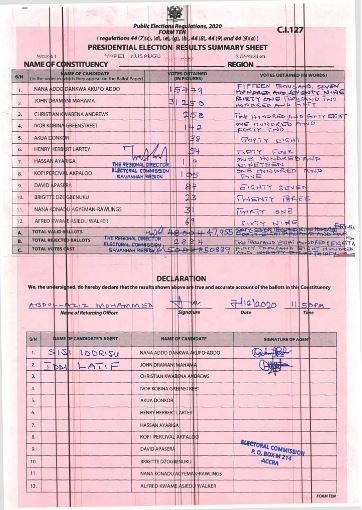 Public Elections Regulations, 2020
FORM TEN
C.I.127
PRESIDENTIAL ELECTION RESULTS SUMMARY SHEET
NAME OF CONSTITUENCY
REGION
S/N NAME OF CANDIDATE VOTES OBTAINED IN FIGURES VOTES OBTAINED (IN WORDS)
(in the order in which they appear on the Ballot Paper)
1. NANA ADDO DANKWA AKUFO-ADDO 15779 FIFTEEN THOUSAND, SEVEN HUNDRED AND SEVENTY NINE
2. JOHN DRAMANI MAHAMA 31250 THIRTY ONE THOUSAND TWO HUNDRED AND FIFTY
3. CHRISTIAN KWABENA ANDREWS 258 TWO HUNDRED AND FIFTY EIGHT
4. IVOR KOBINA GREENSTREET 142 ONE HUNDRED AND FORTY TWO
5. AKUA DONKOR 38 THIRTY EIGHT
6. HENRY HERBERT LARTEY 54 FIFTY FOUR
7. HASSAN AYARIGA 119 ONE HUNDRED AND NINETEEN
8. KOFI PERCIVAL AKPALOO 105 ONE HUNDRED AND
9. DAVID APASERA 87 EIGHTY SEVEN
10. BRIGITTE DZOGBENUKU 23 TWENTY THREE
11. NANA KONADU AGYEMAN-RAWLINGS 31 THIRTY ONE
12. ALFRED KWAME ASIEDU WALKER 69 SIXTY NINE
THE REGIONAL DIRECTOR
ELECTORAL COMMISSION
SAVANNAH REGION
A. TOTAL VALID BALLOTS 47,955
B. TOTAL REJECTED BALLOTS 2884
C. TOTAL VOTES CAST 50839
THE REGIONAL DIRECTOR
ELECTORAL COMMISSION
SAVANNAH REGION
DECLARATION
We, the undersigned, do hereby declare that the results shown above are true and accurate account of the ballots in this Constituency
ABDUL-AZIZ MOHAMMED 7/12/2020 11:50PM
Name of Returning Officer Signature Date Time
S/N NAME OF CANDIDATE'S AGENT NAME OF CANDIDATE SIGNATURE OF AGENT
1. SISI IDDRISU NANA ADDO DANKWA AKUFO-ADDO
2. IDDI LATIF JOHN DRAMANI MAHAMA
3. CHRISTIAN KWABENA ANDREWS
4. IVOR KOBINA GREENSTREET
5. AKUA DONKOR
6. HENRY HERBERT LARTEY
7. HASSAN AYARIGA
8. KOFI PERCIVAL AKPALOO
9. DAVID APASERA
10. BRIGITTE DZOGBENUKU
11. NANA KONADU AGYEMAN-RAWLINGS
12. ALFRED KWAME ASIEDU WALKER
ELECTORAL COMMISSION
P. O. BOX M 214
ACCRA
FORM TEN